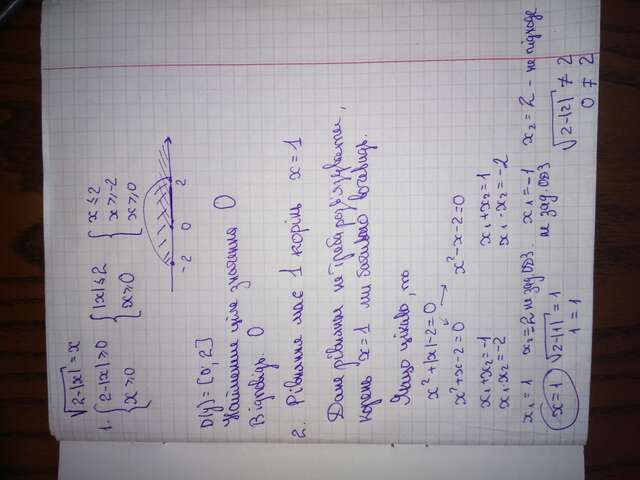 √2-|x| = x
1. { 2-|x| ≥ 0 { |x| ≤ 2 { x ≤ 2
x ≥ 0 x ≥ 0 x ≥ -2
x ≥ 0
-2 0 2
D(y) = [0; 2]
Найменше ціле значення 0
Відповідь. 0
2. Рівняння має 1 корінь x = 1
Дане рівняння не треба розв'язувати,
корінь x = 1 ми бачимо вочевидь.
Якщо цікаво, то
x² + |x| - 2 = 0
x² + x - 2 = 0 x² - x - 2 = 0
x₁ + x₂ = -1 x₁ + x₂ = 1
x₁ x₂ = -2 x₁ · x₂ = -2
x₁ = 1 x₂ = 2 не зад ОДЗ. x₁ = -1 x₂ = 2 - не підходе
не зад. ОДЗ
x = 1 √2-|1| = 1 √2-|2| ≠ 2
1 = 1 0 ≠ 2